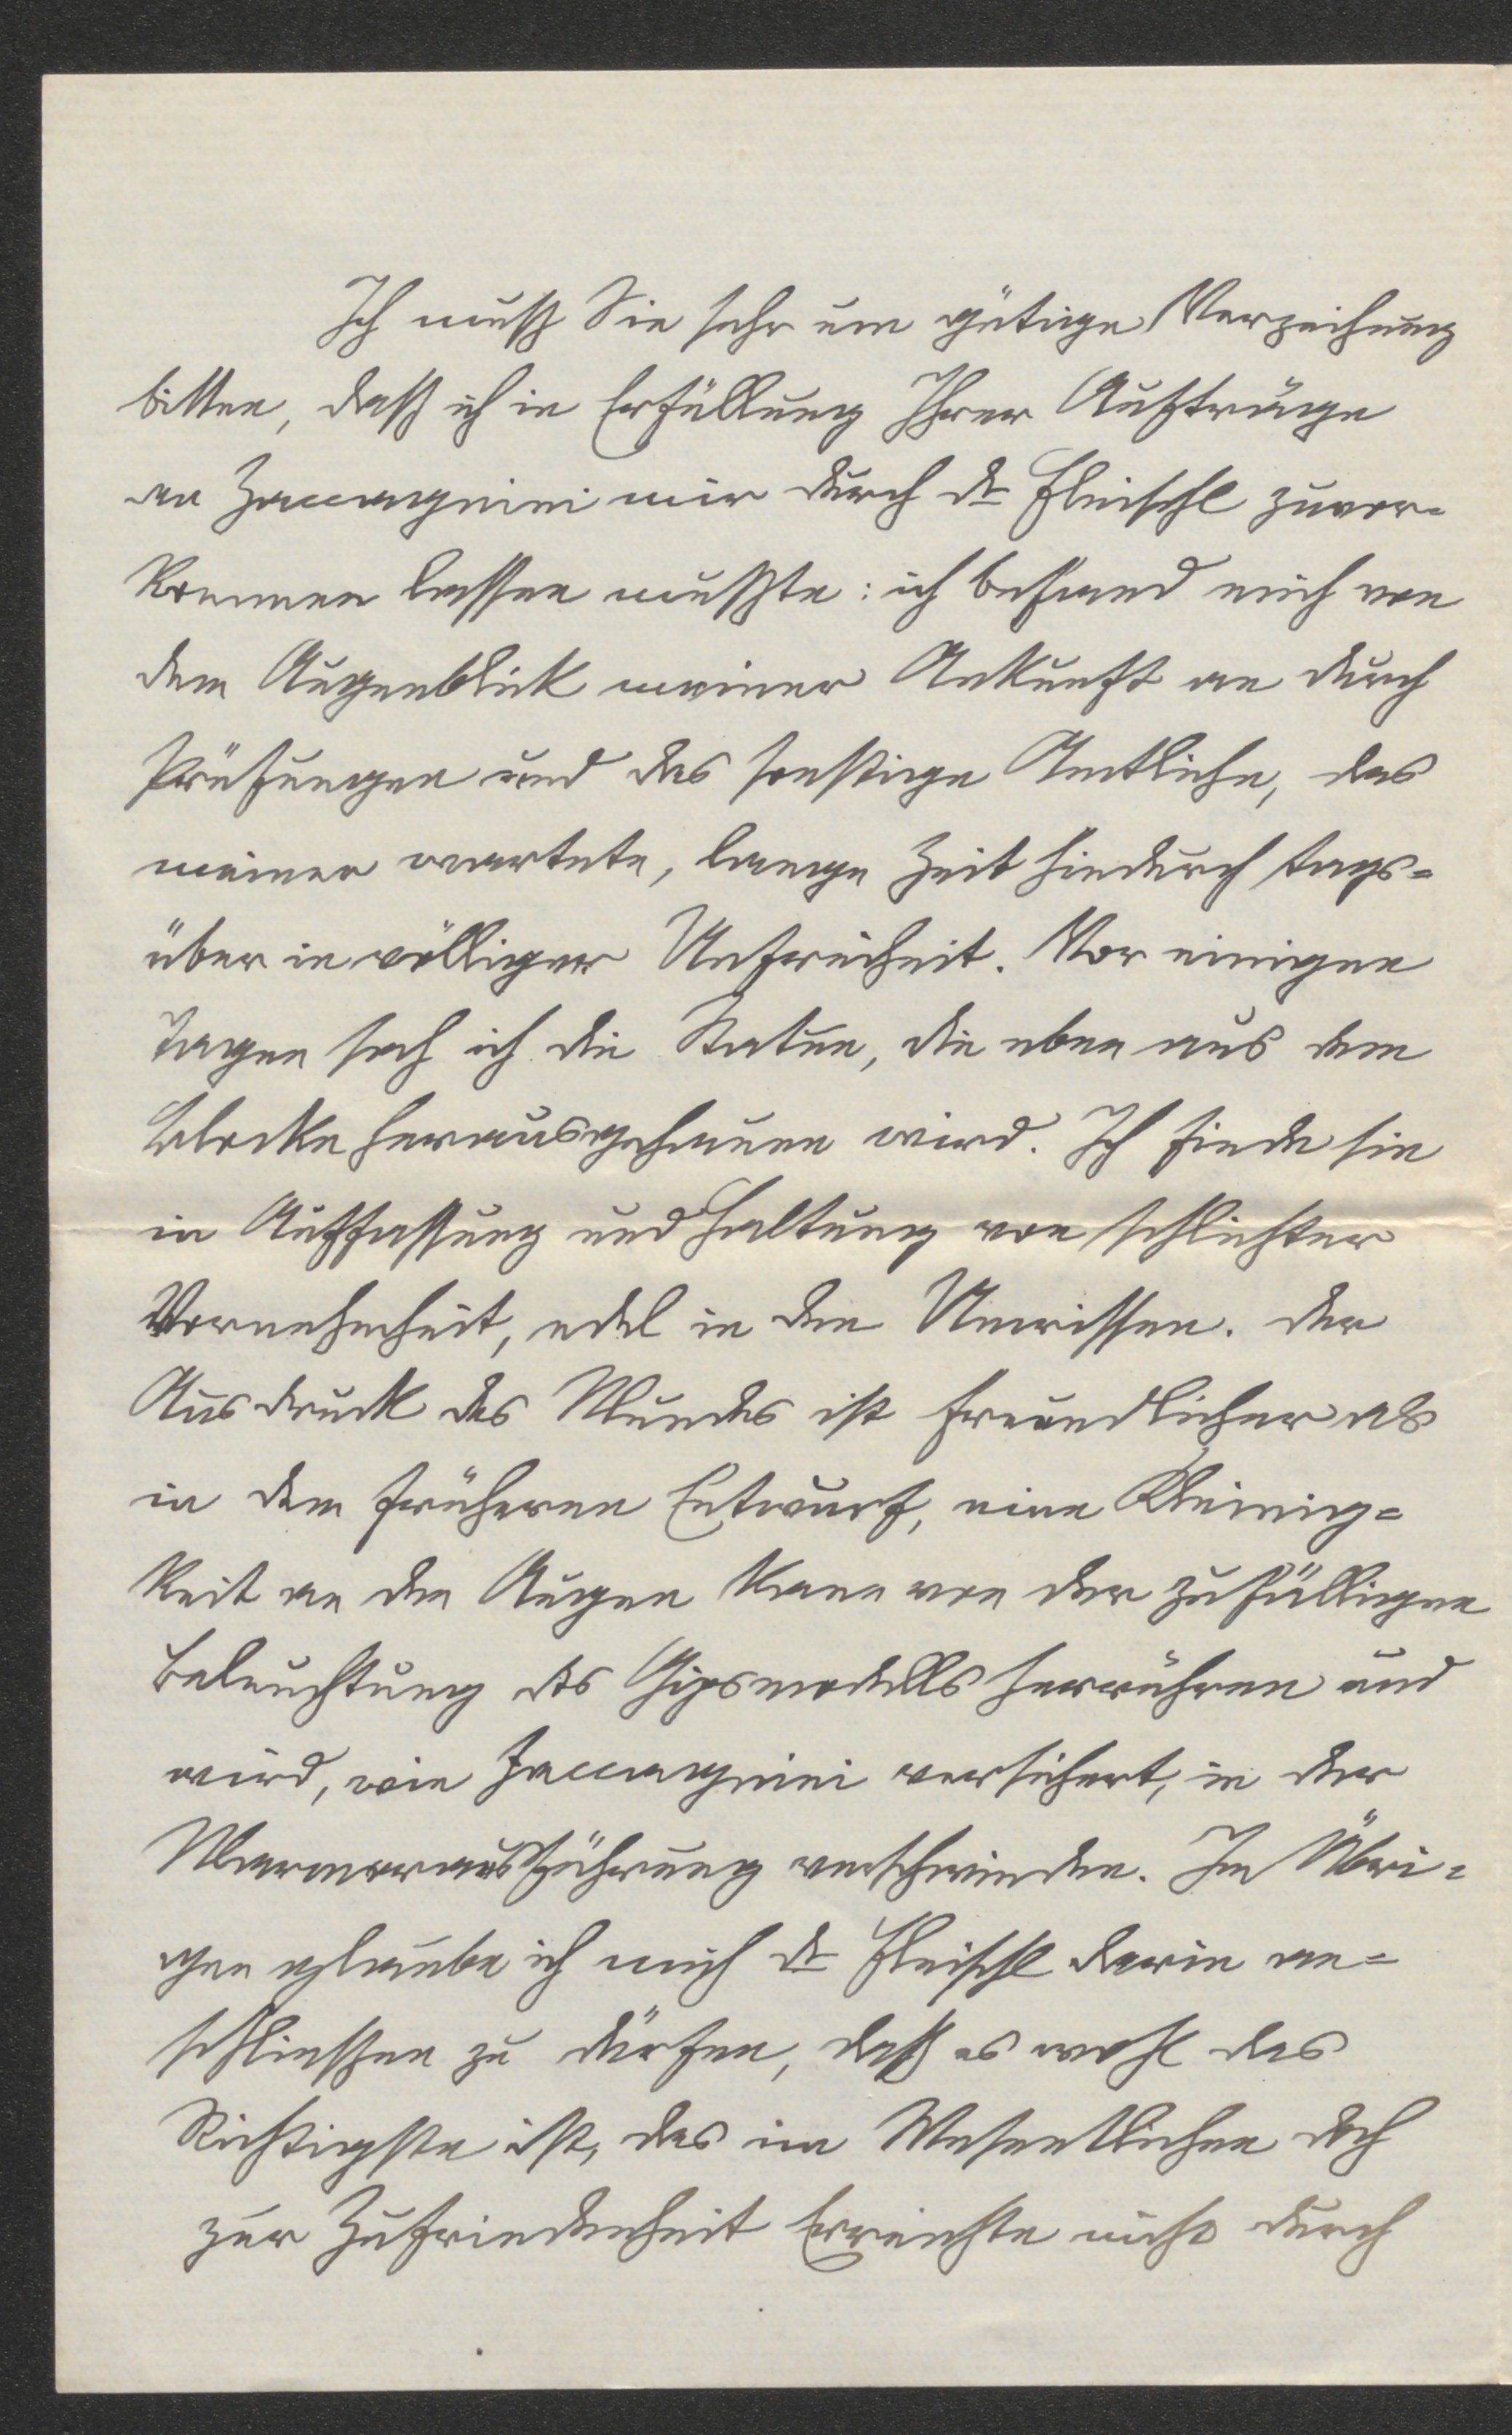 Ich muß Sie sehr um gütige Verzeihung
bitten, daß ich in Erfüllung Ihrer Aufträge
an Zaccagnini mir durch Dr Fleischl zuvor-
kommen lassen mußte: ich befand mich von
dem Augenblick meiner Ankunft an durch
Prüfungen und das sonstige Amtliche, das
meiner wartete, lange Zeit hindurch tags=
über in völliger Unfreiheit. Vor einigen
Tagen sah ich die Statue, die eben aus dem
Blocke herausgehauen wird. Ich finde sie
in Auffassung und Haltung von schlichter
Vornehmheit, edel in den Umrissen. Der
Ausdruck des Mundes ist freundlicher als
in dem früheren Entwurf, eine Kleinig=
keit an den Augen kann von der zufälligen
Beleuchtung des Gipsmodells herrühren und
wird, wie Zaccagnini versichert, in der
Marmorausführung verschwinden. Im Übri=
gen glaube ich mich Dr Fleischl darin an=
schließen zu dürfen, daß es wohl das
Richtigste ist, das im Wesentlichen doch
zur Zufriedenheit Erreichte nicht durch